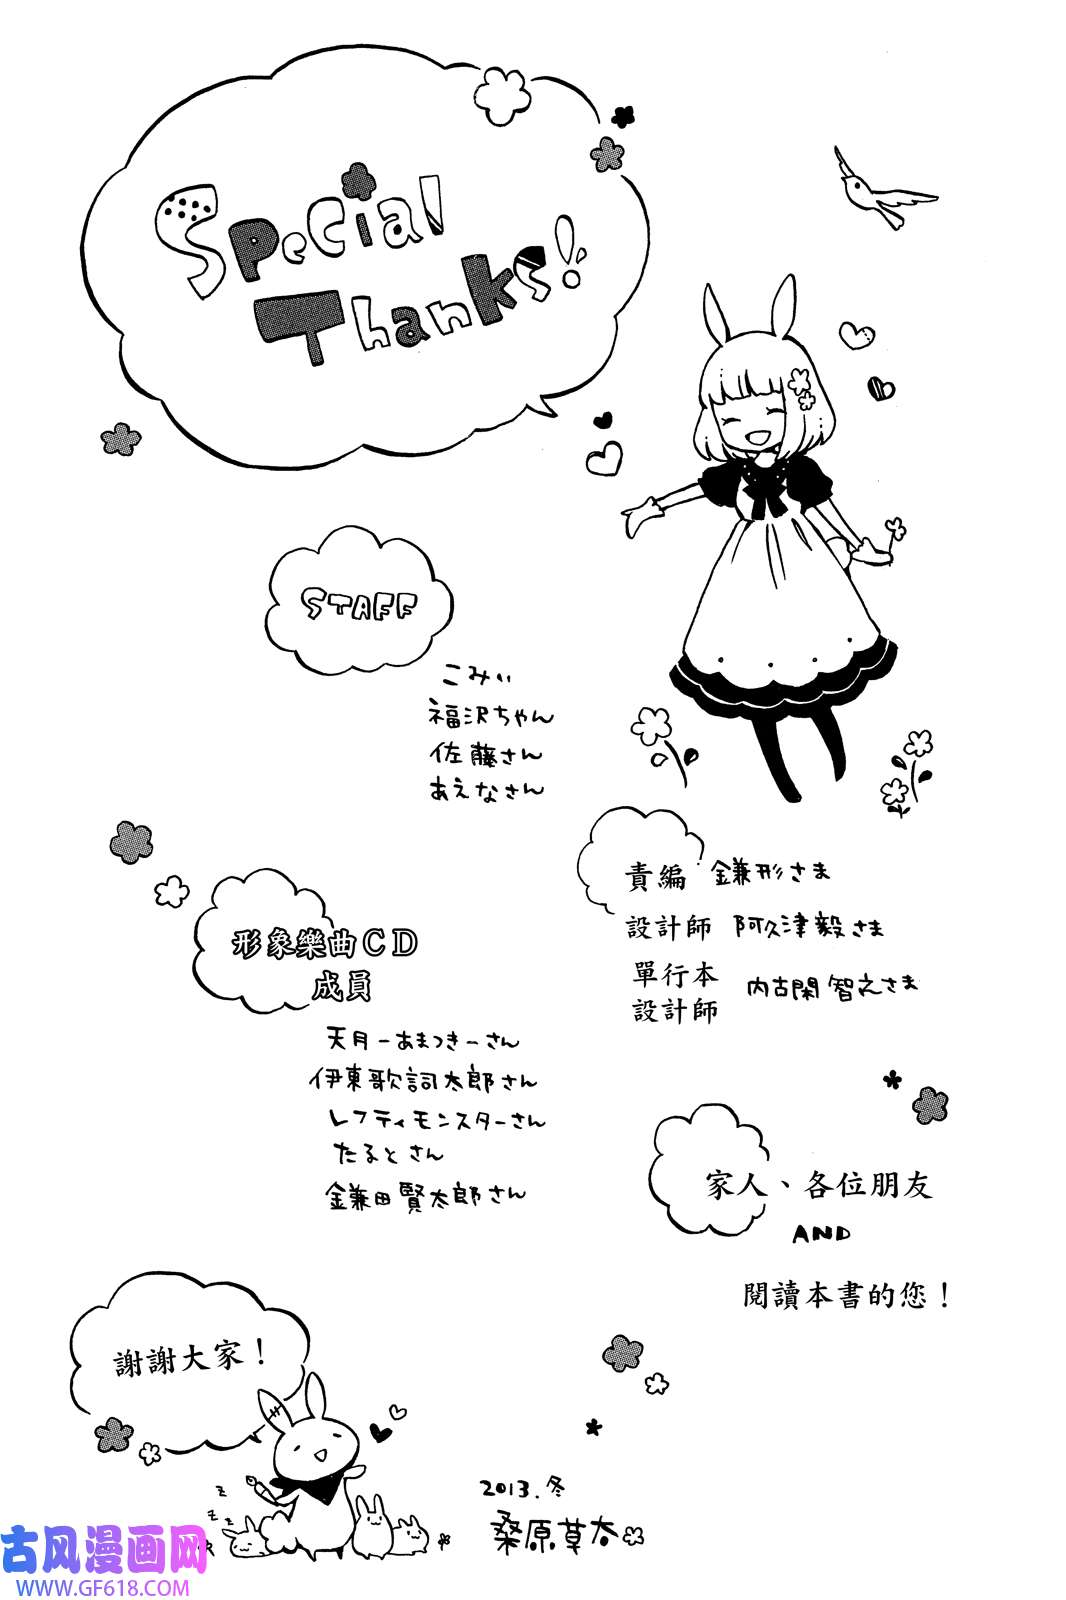 Special
Thanks!
STAFF
こみい
福沢ちゃん
佐藤さん
あえなさん
責編 鎌形さま
設計師 阿久津毅さま
單行本
設計師
内古閑智之さま
形象樂曲CD
成員
天月ーあまつきーさん
伊東歌詞太郎さん
レフティモンスターさん
たるとさん
鎌田賢太郎さん
家人、各位朋友
AND
閱讀本書的您！
謝謝大家！
z
z
z
2013.冬
桑原草太
古风漫画网
WWW.GF618.COM